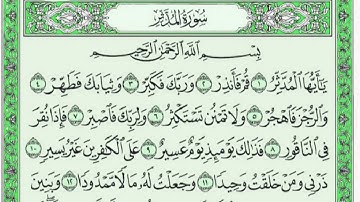 سُورَةُ الْمُدَّثِّرِ
بِسْمِ اللَّهِ الرَّحْمَٰنِ الرَّحِيمِ
يَا أَيُّهَا الْمُدَّثِّرُ ١ قُمْ فَأَنذِرْ ٢ وَرَبَّكَ فَكَبِّرْ ٣ وَثِيَابَكَ فَطَهِّرْ ٤
وَالرُّجْزَ فَاهْجُرْ ٥ وَلَا تَمْنُن تَسْتَكْثِرُ ٦ وَلِرَبِّكَ فَاصْبِرْ ٧ فَإِذَا نُقِرَ
فِي النَّاقُورِ ٨ فَذَٰلِكَ يَوْمَئِذٍ يَوْمٌ عَسِيرٌ ٩ عَلَى الْكَافِرِينَ غَيْرُ يَسِيرٍ ١٠
ذَرْنِي وَمَنْ خَلَقْتُ وَحِيدًا ١١ وَجَعَلْتُ لَهُ مَالًا مَّمْدُودًا ١٢ وَبَنِينَ